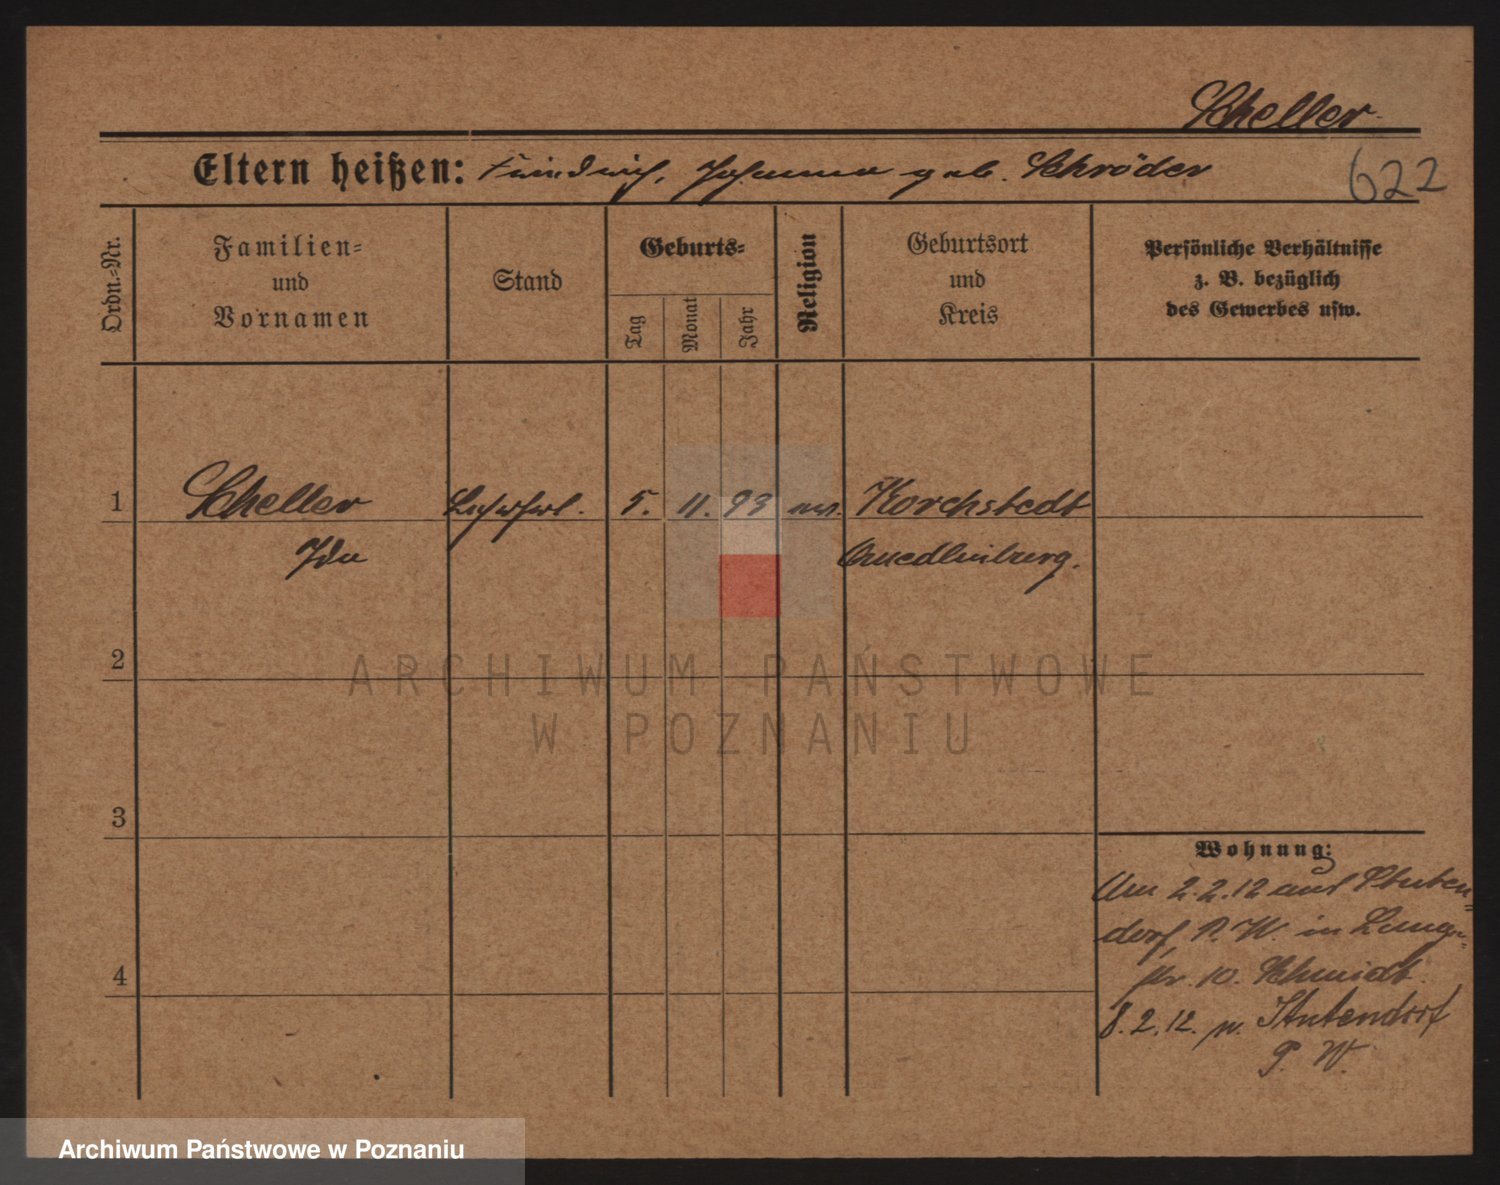 Scheller
Eltern heißen: Friedrich, Johanna geb. Schröder
622
Ordn.-Nr.
Familien-
und
Vornamen
Stand
Geburts-
Tag
Monat
Jahr
Religion
Geburtsort
und
Kreis
Persönliche Verhältnisse
z. B. bezüglich
des Gewerbes usw.
1
Scheller
5. 11. 93
Korchstedt
Ida
Quedlinburg.
2
ARCHIWUM PAŃSTWOWE
W POZNANIU
3
Wohnung:
Am 2.2.12 aus Stuten-
dorf, P. W. in
10. Schmidt
4
8.2.12. n. Stutendorf
P. W.
Archiwum Państwowe w Poznaniu